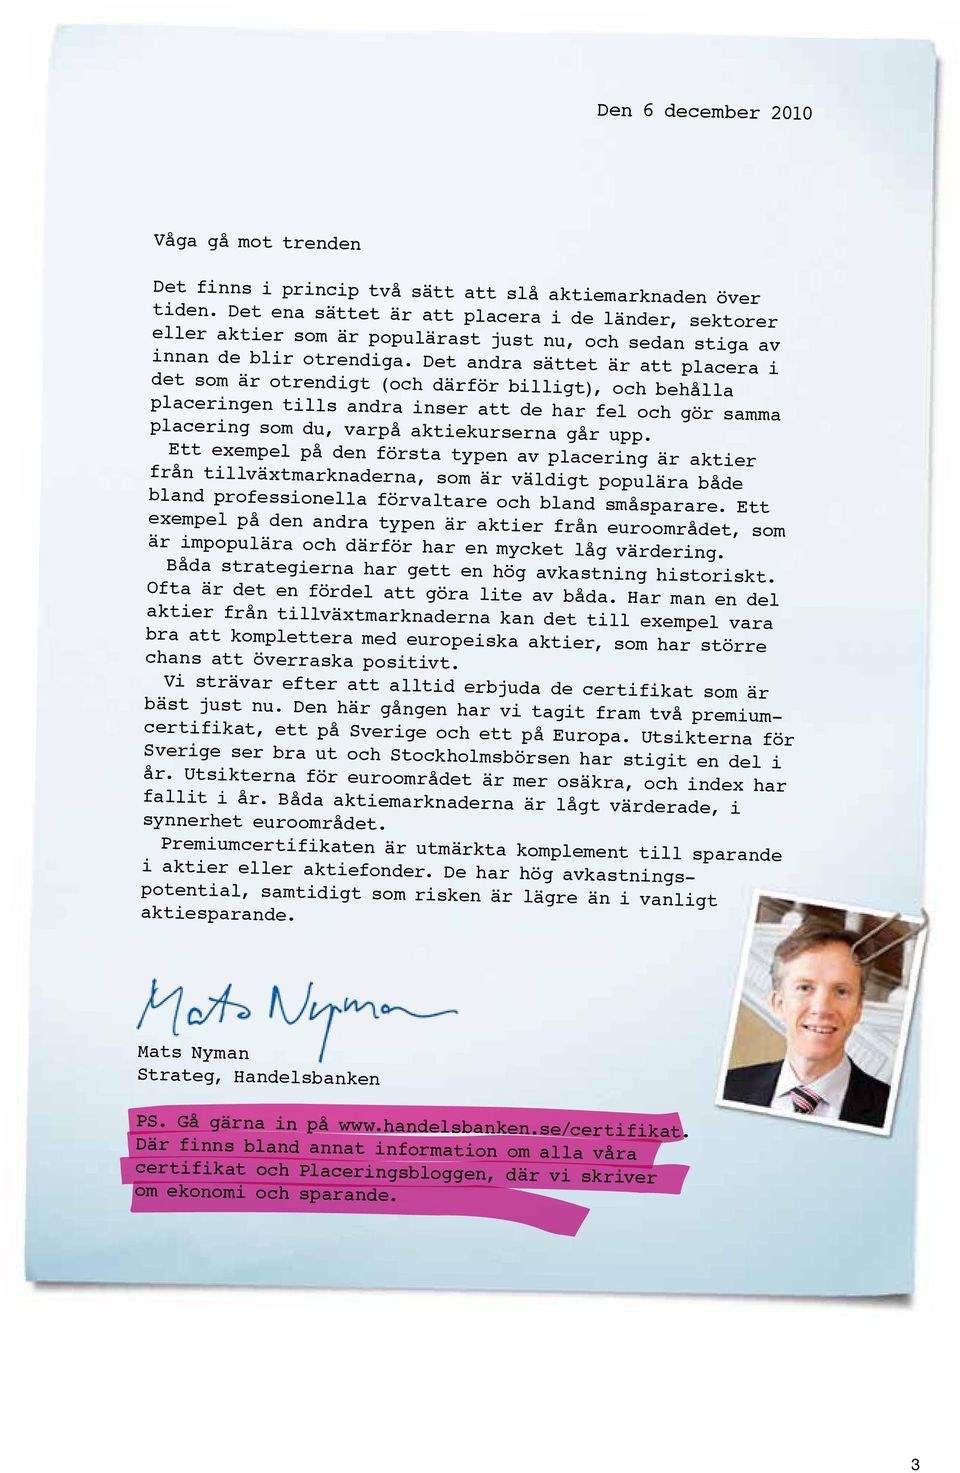 Den 6 december 2010
Våga gå mot trenden
Det finns i princip två sätt att slå aktiemarknaden över
tiden. Det ena sättet är att placera i de länder, sektorer
eller aktier som är populärast just nu, och sedan stiga av
innan de blir otrendiga. Det andra sättet är att placera i
det som är otrendigt (och därför billigt), och behålla
placeringen tills andra inser att de har fel och gör samma
placering som du, varpå aktiekurserna går upp.
Ett exempel på den första typen av placering är aktier
från tillväxtmarknaderna, som är väldigt populära både
bland professionella förvaltare och bland småsparare. Ett
exempel på den andra typen är aktier från euroområdet, som
är impopulära och därför har en mycket låg värdering.
Båda strategierna har gett en hög avkastning historiskt.
Ofta är det en fördel att göra lite av båda. Har man en del
aktier från tillväxtmarknaderna kan det till exempel vara
bra att komplettera med europeiska aktier, som har större
chans att överraska positivt.
Vi strävar efter att alltid erbjuda de certifikat som är
bäst just nu. Den här gången har vi tagit fram två premium-
certifikat, ett på Sverige och ett på Europa. Utsikterna för
Sverige ser bra ut och Stockholmsbörsen har stigit en del i
år. Utsikterna för euroområdet är mer osäkra, och index har
fallit i år. Båda aktiemarknaderna är lågt värderade, i
synnerhet euroområdet.
Premiumcertifikaten är utmärkta komplement till sparande
i aktier eller aktiefonder. De har hög avkastnings-
potential, samtidigt som risken är lägre än i vanligt
aktiesparande.
Mats Nyman
Mats Nyman
Strateg, Handelsbanken
PS. Gå gärna in på www.handelsbanken.se/certifikat.
Där finns bland annat information om alla våra
certifikat och Placeringsbloggen, där vi skriver
om ekonomi och sparande.
3